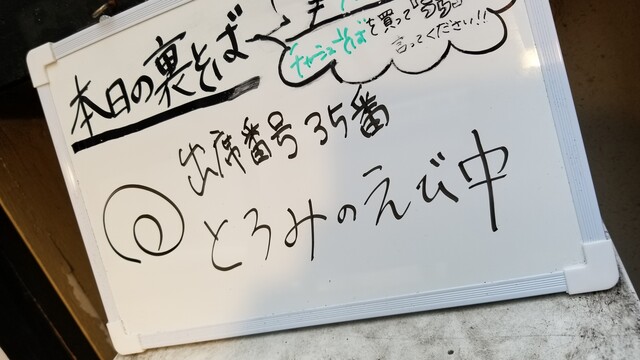 本日の裏そば
チャーシューそばを買って
言ってください!!
出席番号35番
とろみのえび中